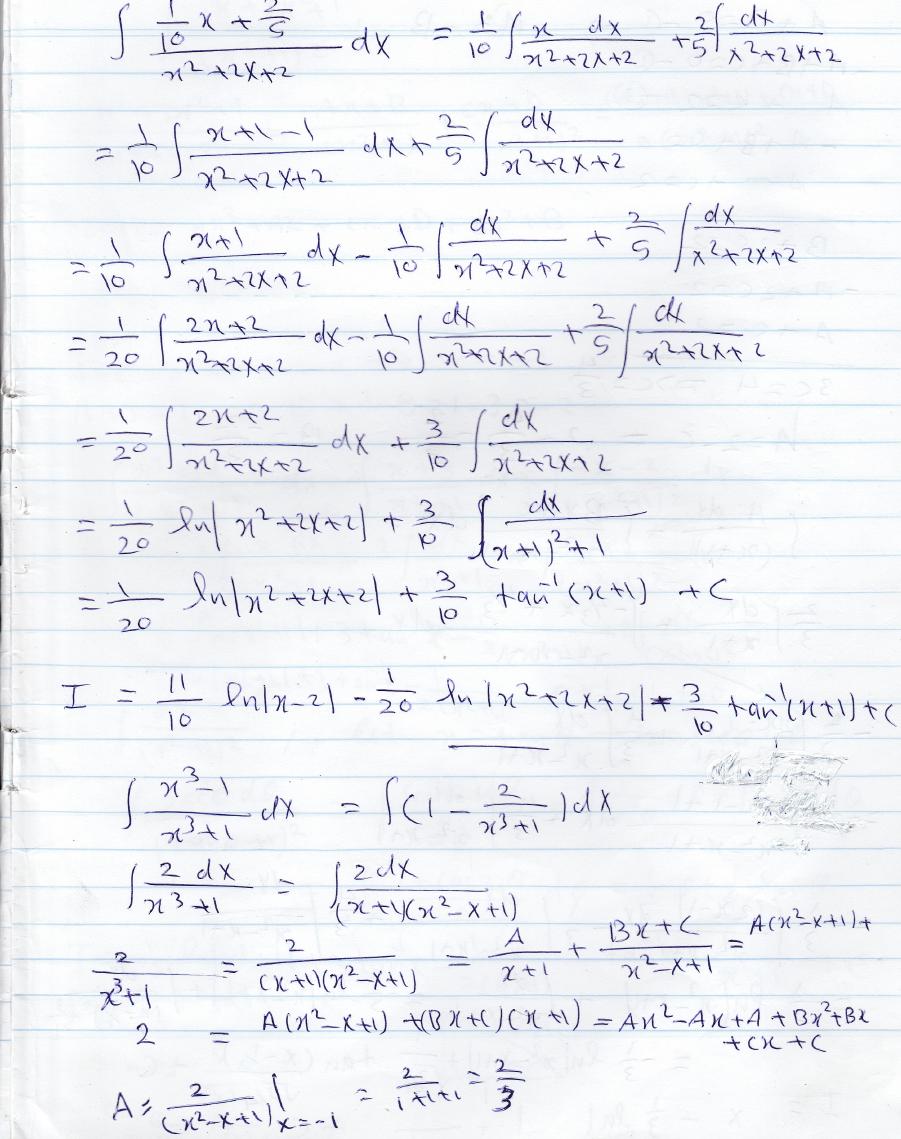 ∫ (1/10 x + 2/5)/(x²+2x+2) dx = 1/10 ∫ x dx/(x²+2x+2) + 2/5 ∫ dx/(x²+2x+2)
= 1/10 ∫ (x+1-1)/(x²+2x+2) dx + 2/5 ∫ dx/(x²+2x+2)
= 1/10 ∫ (x+1)/(x²+2x+2) dx - 1/10 ∫ dx/(x²+2x+2) + 2/5 ∫ dx/(x²+2x+2)
= 1/20 ∫ (2x+2)/(x²+2x+2) dx - 1/10 ∫ dx/(x²+2x+2) + 2/5 ∫ dx/(x²+2x+2)
= 1/20 ∫ (2x+2)/(x²+2x+2) dx + 3/10 ∫ dx/(x²+2x+2)
= 1/20 ln|x²+2x+2| + 3/10 ∫ dx/((x+1)²+1)
= 1/20 ln|x²+2x+2| + 3/10 tan⁻¹(x+1) + C
I = 11/10 ln|x-2| - 1/20 ln|x²+2x+2| - 3/10 tan⁻¹(x+1) + C
∫ (x³-1)/(x³+1) dx = ∫(1 - 2/(x³+1))dx
∫ 2 dx/(x³+1) = ∫ 2dx/((x+1)(x²-x+1))
2/(x³+1) = 2/((x+1)(x²-x+1)) = A/(x+1) + (Bx+C)/(x²-x+1) = A(x²-x+1)+
2 = A(x²-x+1) + (Bx+C)(x+1) = Ax²-Ax+A+Bx²+Bx
+Cx+C
A = 2/(x²-x+1)|x=-1 = 2/(1+1+1) = 2/3